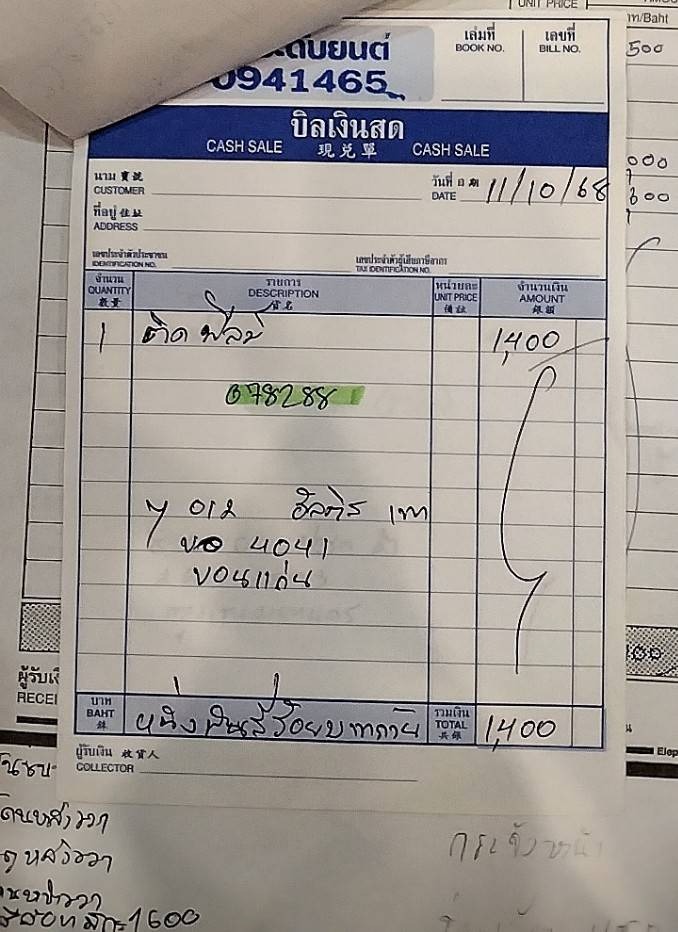 UNIT PRICE
m/Baht
500
000
600
ดับยนต์
0941465
เล่มที่ เลขที่
BOOK NO. BILL NO.
บิลเงินสด
CASH SALE 現兌單 CASH SALE
นาม 寶號
CUSTOMER
วันที่ 日期
DATE 11/10/68
ที่อยู่ 住址
ADDRESS
เลขประจำตัวประชาชน เลขประจำตัวผู้เสียภาษีอากร
IDENTIFICATION NO. TAX IDENTIFICATION NO.
จำนวน รายการ หน่วยละ จำนวนเงิน
QUANTITY DESCRIPTION UNIT PRICE AMOUNT
數量 貨名 價註 銀額
1 ติดฟิล์ม 1,400
078288
ๆ 012 อัลติส เทา
ขอ 4041
ขอนแก่น
บาท รวมเงิน
BAHT หนึ่งพันสี่ร้อยบาทถ้วน TOTAL 1,400
銖 共銀
ผู้รับเงิน 收貨人
COLLECTOR
ผู้รับเงิ
RECEI
1600
กระจังหน้า